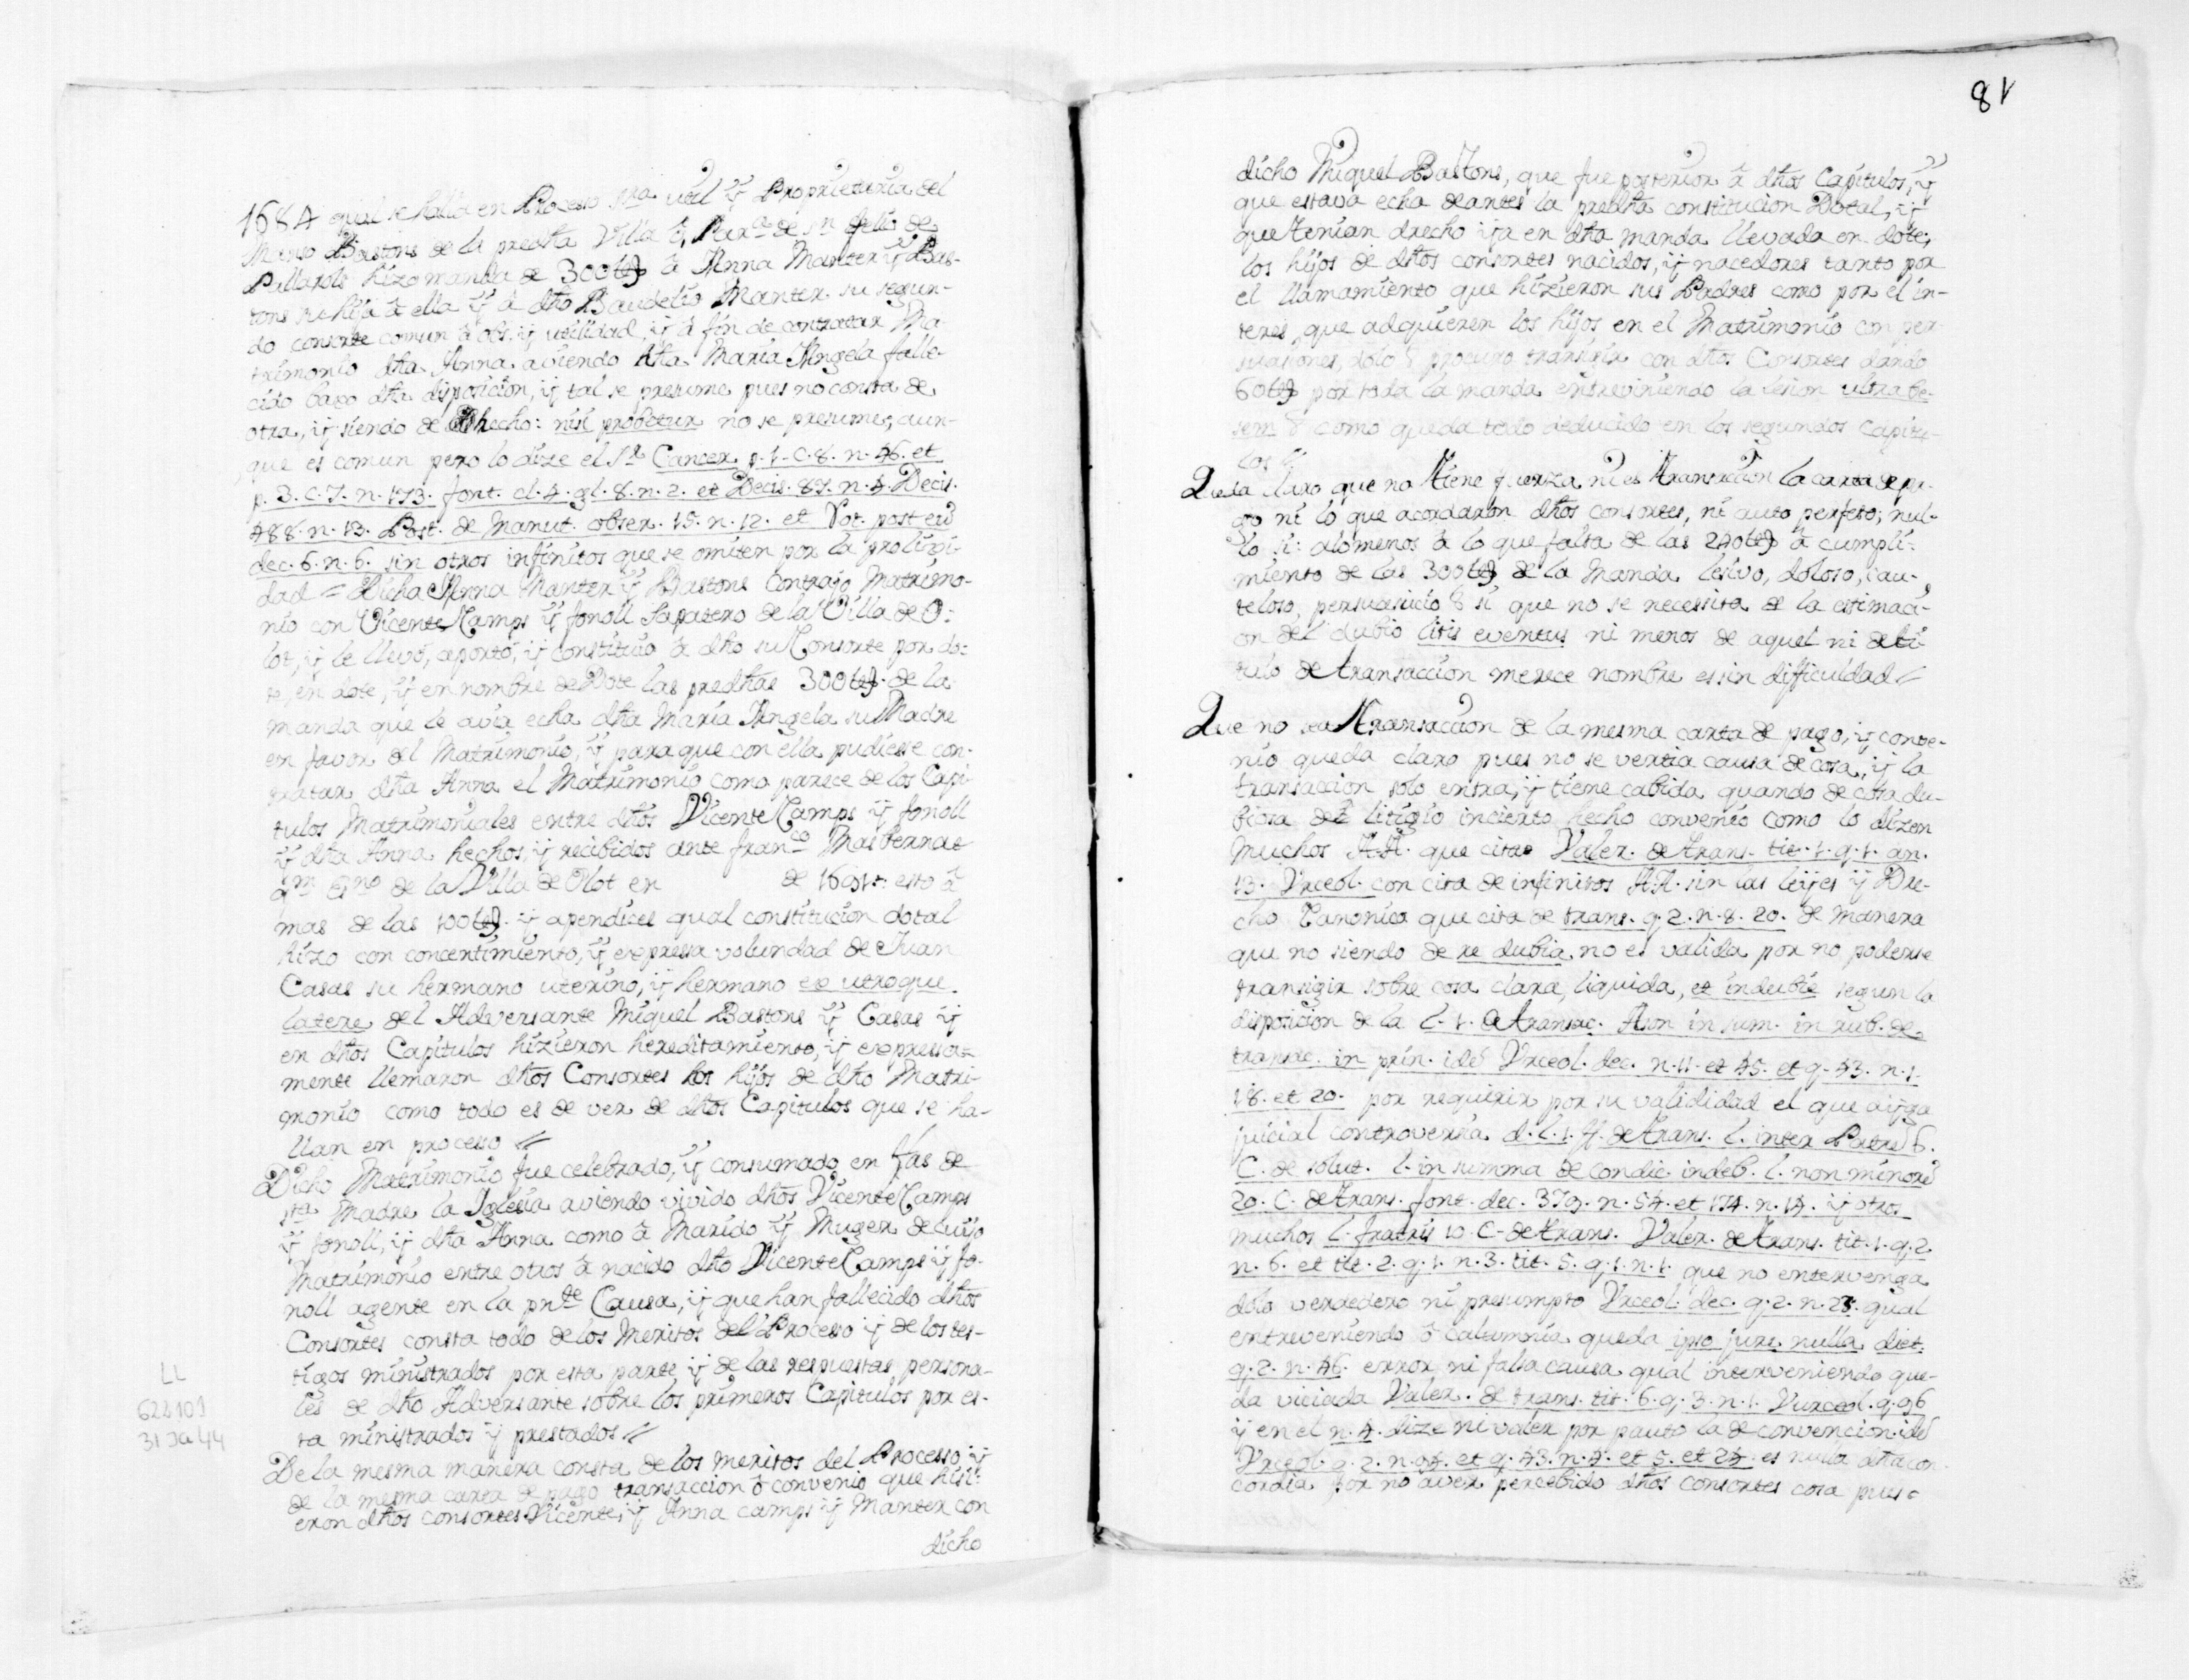 1684 qual se halla en Processo Sra. util ÿ Proprietaria del
Manso Bastons de la predta Villa ò, Parra de Sn feliu de
Pallarols hizo manda de 300 ll à Anna Manter ÿ Bas-
tons su hija à ella ÿ à dho Baudelio Manter su segun-
do consorte comun à obs. ÿ utilidad, ÿ à fin de contratar Ma-
trimonio dha Anna aviendo dha Maria Angela falle-
cido baxo dha disposicion, ÿ tal se presume pues no consta de
otra, ÿ siendo de hecho: nisi probetur no se presume, aun-
que es comun pero lo dize el Sr. Cancer p. 1. c. 8. n. 46. et
p. 3. c. 7. n. 173. font. cl. 4. gl. 8. n. 2. et Decis. 87. n. 4. Decis.
488. n. 13. Post. de Manut. obser. 15. n. 12. et Rot. post eū
dec. 6. n. 6. sin otros infinitos que se omiten por la prolixi-
dad = Dicha Anna Manter ÿ Bastons Contrajo Matrimo-
nio con Vicente Camps ÿ fonoll Sapatero de la Villa de O-
lot, ÿ le llevó, aportó, ÿ constituió à dho su Consorte por do-
te, en dote, ÿ en nombre de Dote las predhas 300 ll. de la
manda que le avia echa dha Maria Angela su Madre
en favor del Matrimonio, ÿ para que con ella pudiesse con-
tratar dha Anna el Matrimonio como parece de los Capi-
tulos Matrimoniales entre dhos Vicente Camps ÿ fonoll
ÿ dha Anna hechos, ÿ recibidos ante franco Masbernat
qm Esno de la Villa de Olot en de 1691: esto à
mas de las 100 ll. ÿ apendices qual constitucion dotal
hizo con concentimiento, ÿ expressa volundad de Juan
Casas su hermano uterino, ÿ hermano ex utroque
latere del Adversante Miguel Bastons ÿ Casas ÿ
en dhos Capitulos hizieron hereditamiento, ÿ expressa-
mente llemaron dhos Consortes los hijos de dho Matri-
monio como todo es de ver de dhos Capitulos que se ha-
llan en processo //
Dicho Matrimonio fue celebrado, ÿ consumado en fas de
Sta Madre la Iglesia aviendo vivido dhos Vicente Camps
ÿ fonoll, ÿ dha Anna como à Marido ÿ Muger de cuijo
Matrimonio entre otros à nacido dho Vicente Camps ÿ fo-
noll agente en la pnte Causa, ÿ que han fallecido dhos
Consortes consta todo de los Meritos del Processo ÿ de los tes-
tigos ministrados por esta parte ÿ de las respuestas persona-
les de dho Adversante sobre los primeros Capitulos por es-
ta ministrados ÿ prestados //
De la mesma manera consta de los meritos del Processo ÿ
de la mesma carta de pago transaccion ò convenio que hizi-
eron dhos consortes Vicente, ÿ Anna camps ÿ Manter con
dicho
LL
624101
31 Ja 44
81
dicho Miguel Bastons, que fue posterior à dhos Capitulos, ÿ
que estava echa de antes la predha constitucion Dotal, ÿ
que tenian drecho ija en dha manda llevada en dote,
los hijos de dhos consortes nacidos, ÿ nacedores tanto por
el llamamiento que hizieron sus Padres como por el in-
teres, que adquieren los hijos en el Matrimonio con per
suasiones, dolo & procuro transigir con dhos Consortes dando
60 ll por toda la manda entreviniendo la lesion ultra be-
sem & como queda todo deducido en los segundos Capitu-
los //
Queda claro que no tiene fuerza ni es transaccion la carta de pa-
go ni lo que acordaron dhos consortes, ni auto perfeto; nul-
lo si: alomenos à lo que falta de las 240 ll à cumpli-
miento de las 300 ll de la Manda lesivo, doloso, cau-
teloso, persuasivo & si que no se necessita de la estimaci-
on del dubio litis eventus ni menos de aquel ni de ti-
tulo de transaccion merece nombre es sin difficuldad //
Que no sea transaccion de la mesma carta de pago, ÿ conve-
nio queda claro pues no se vertia causa de cosa, ÿ la
transaccion solo entra, ÿ tiene cabida quando de cosa du-
biosa de litigio incierto hecho convenio como lo dizen
muchos AA. que citas Valer. de trans. tit. 1. q. 1. an.
13. Urceol. con cita de infinitos AA. sin las leijes ÿ Dre-
cho Canonico que cita de trans. q. 2. n. 8. 20. de manera
que no siendo de re dubia no es valida por no poderse
transigir sobre cosa clara, liquida, et indubie segun la
disposicion de la l. 1. de transac. Azon in sum. in rub. de
transac. in prin. idē Urceol. dec. n. 11. et 45. et q. 43. n. 1.
18. et 20. por requirir por su valididad el que aijga
juicial controversia d. l. 1. ff. de trans. l. inter Patrē 6.
C. de solut. l. in summa de condic. indeb. l. non minorē
20. C. de trans. font. dec. 379. n. 54. et 174. n. 14. ÿ otros
muchos l. fratris 10. C. de trans. Valer. de trans. tit. 1. q. 2.
n. 6. et tit. 2. q. 1. n. 3. tit. 5. q. 1. n. 1. que no entervenga
dolo verdedero ni presumpto Urceol. dec. q. 2. n. 23. qual
entreveniendo ò calumnia queda ipso jure nulla dict.
q. 2. n. 46. error, ni falsa causa qual interveniendo que-
da viciada Valer. de trans. tit. 6. q. 3. n. 1. Vurceol. q. 96
ÿ en el n. 4. dize ni valer por pauto la de convencion. idē
Urceol. q. 2. n. 94. et q. 43. n. 4. et 5. et 24. es nulla dha con-
cordia por no aver percebido dhos consortes cosa pues